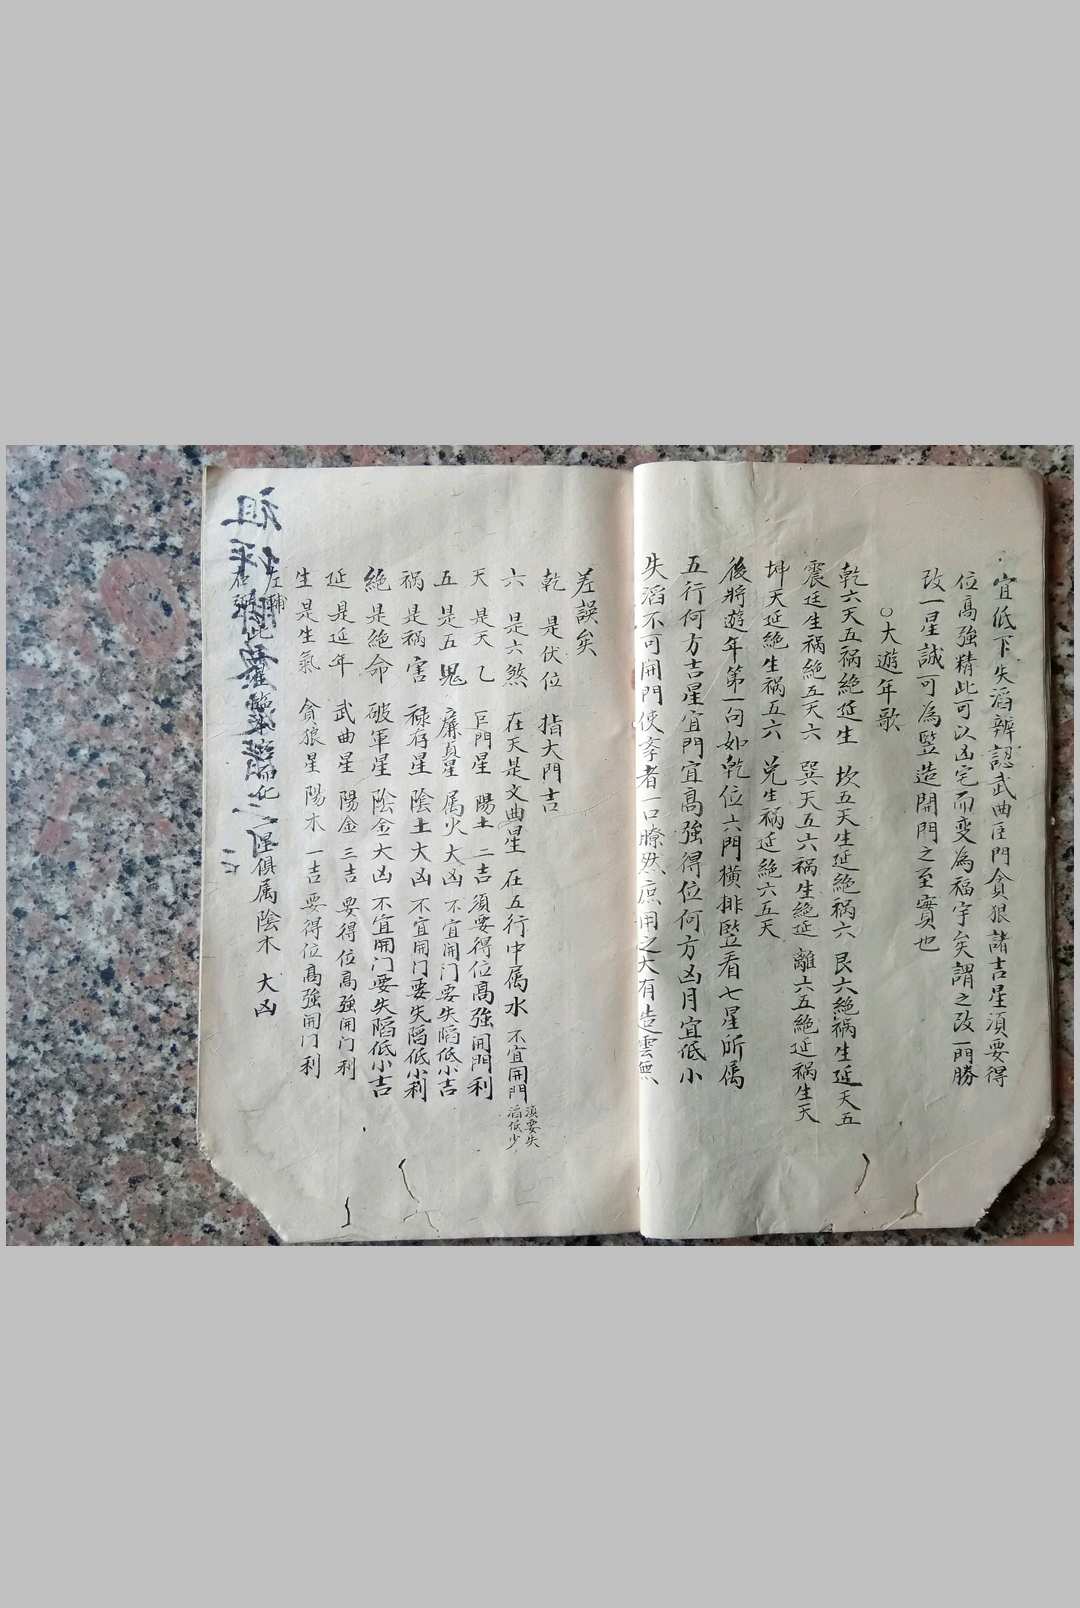 宜低下失滔辨認武曲臣門貪狠諸吉星須要得
位高強精此可以凶宅而变為福宇矣謂之改一門勝
改一星誠可為竪造開門之至寳也
○大遊年歌
乾六天五禍絶延生 坎五天生延絶禍六 艮六絶禍生延天五
震廷生禍絶五天六 巽天五六禍生絶延 離六五絶延禍生天
坤天延絶生禍五六 兑生禍延絶六五天
後將遊年第一句如乾位六門横排竪看七星所属
五行何方吉星宜門宜高強得位何方凶月宜低小
失滔不可開門使孝者一口瞭然庶用之大有造雲無
差誤矣
乾 是伏位 指大門吉
六 是六煞 在天是文曲星 在五行中属水 不宜開門 須要失滔低少
天 是天乙 巨門星 陽土 二吉須要得位高強開門利
五 是五鬼 廉真星 属火大凶 不宜開门要失陷低小吉
禍 是禍害 禄存星 陰土大凶 不宜開门要失陷低小利
絶 是絶命 破軍星 陰金大凶 不宜開门要失陷低小吉
延 是延年 武曲星 陽金三吉 要得位高強開门利
生 是生氣 貪狼星 陽木一吉 要得位高強開门利
左輔
右弼 此二星俱属陰木 大凶